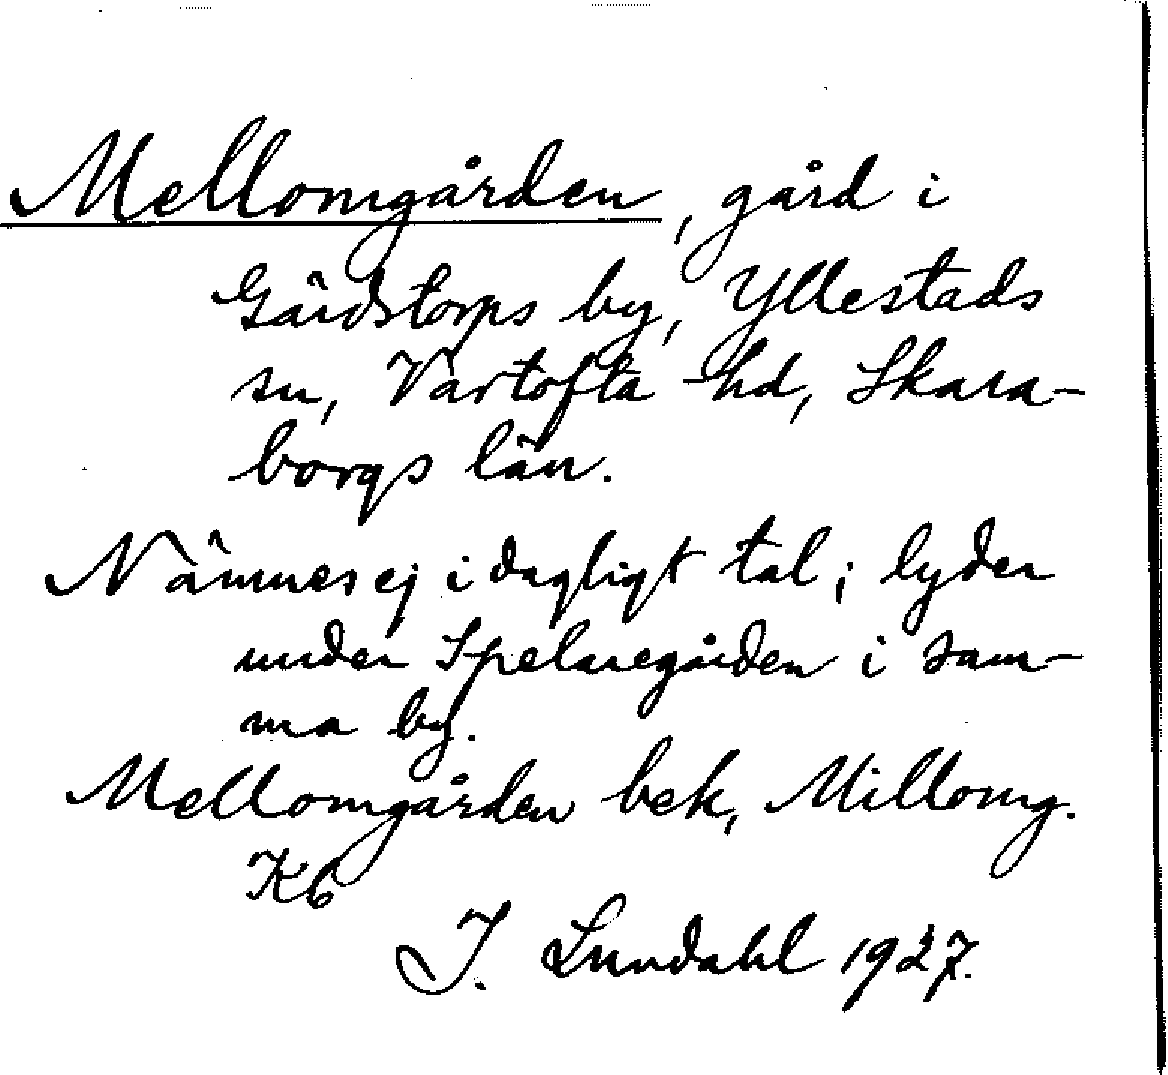 Mellomgården, gård i
Gärdstorps by, Yllestads
sn, Vartofta hd, Skara-
borgs län.
Nämnes ej i dagligt tal; lyder
under Spelaregården i sam-
ma by.
Mellomgården bek, Millomg.
Kb
I. Lundahl 1927.